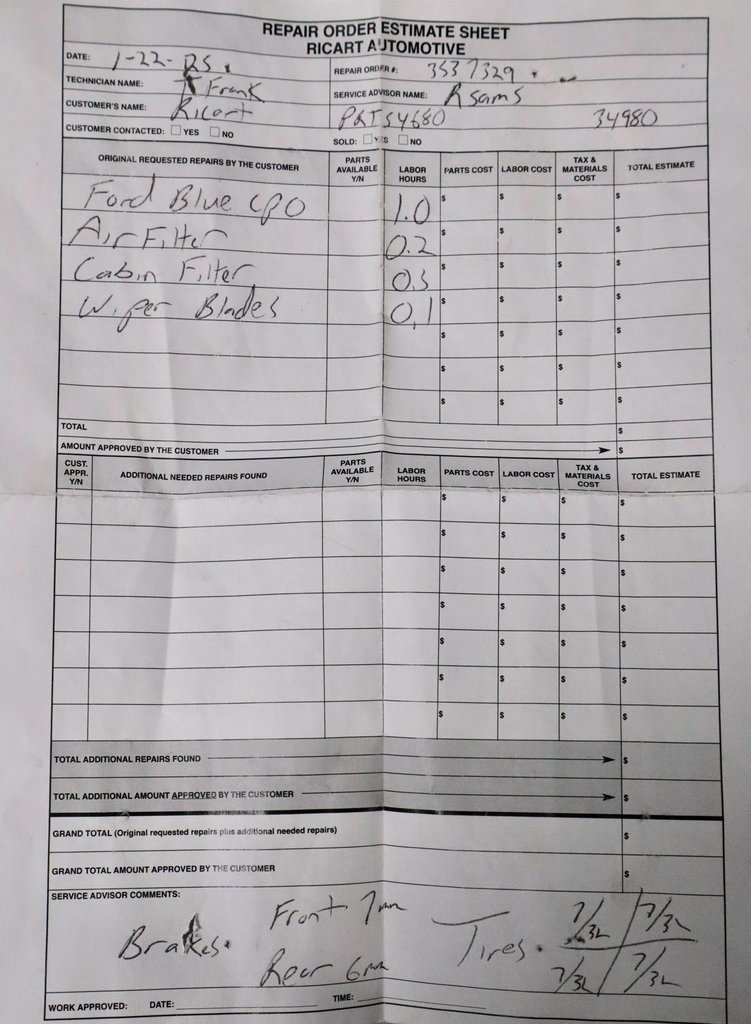 REPAIR ORDER ESTIMATE SHEET
RICART AUTOMOTIVE
DATE: 1-22-25.
REPAIR ORDER #: 3537329
TECHNICIAN NAME: T Frank
SERVICE ADVISOR NAME: R sams
CUSTOMER'S NAME: Ricart
PRTS4680 34980
CUSTOMER CONTACTED: YES NO
SOLD: YES NO
ORIGINAL REQUESTED REPAIRS BY THE CUSTOMER PARTS AVAILABLE Y/N LABOR HOURS PARTS COST LABOR COST TAX & MATERIALS COST TOTAL ESTIMATE
Ford Blue CPO 1.0 $ $ $ $
Air Filter 0.2 $ $ $ $
Cabin Filter 0.3 $ $ $ $
Wiper Blades 0.1 $ $ $ $
$ $ $ $
$ $ $ $
$ $ $ $
TOTAL $
AMOUNT APPROVED BY THE CUSTOMER $
CUST. APPR. Y/N ADDITIONAL NEEDED REPAIRS FOUND PARTS AVAILABLE Y/N LABOR HOURS PARTS COST LABOR COST TAX & MATERIALS COST TOTAL ESTIMATE
$ $ $ $
$ $ $ $
$ $ $ $
$ $ $ $
$ $ $ $
$ $ $ $
$ $ $ $
TOTAL ADDITIONAL REPAIRS FOUND $
TOTAL ADDITIONAL AMOUNT APPROVED BY THE CUSTOMER $
GRAND TOTAL (Original requested repairs plus additional needed repairs) $
GRAND TOTAL AMOUNT APPROVED BY THE CUSTOMER $
SERVICE ADVISOR COMMENTS:
Brakes. Front 7mm Tires. 7/32 7/32
Rear 6mm 7/32 7/32
WORK APPROVED: DATE: TIME: